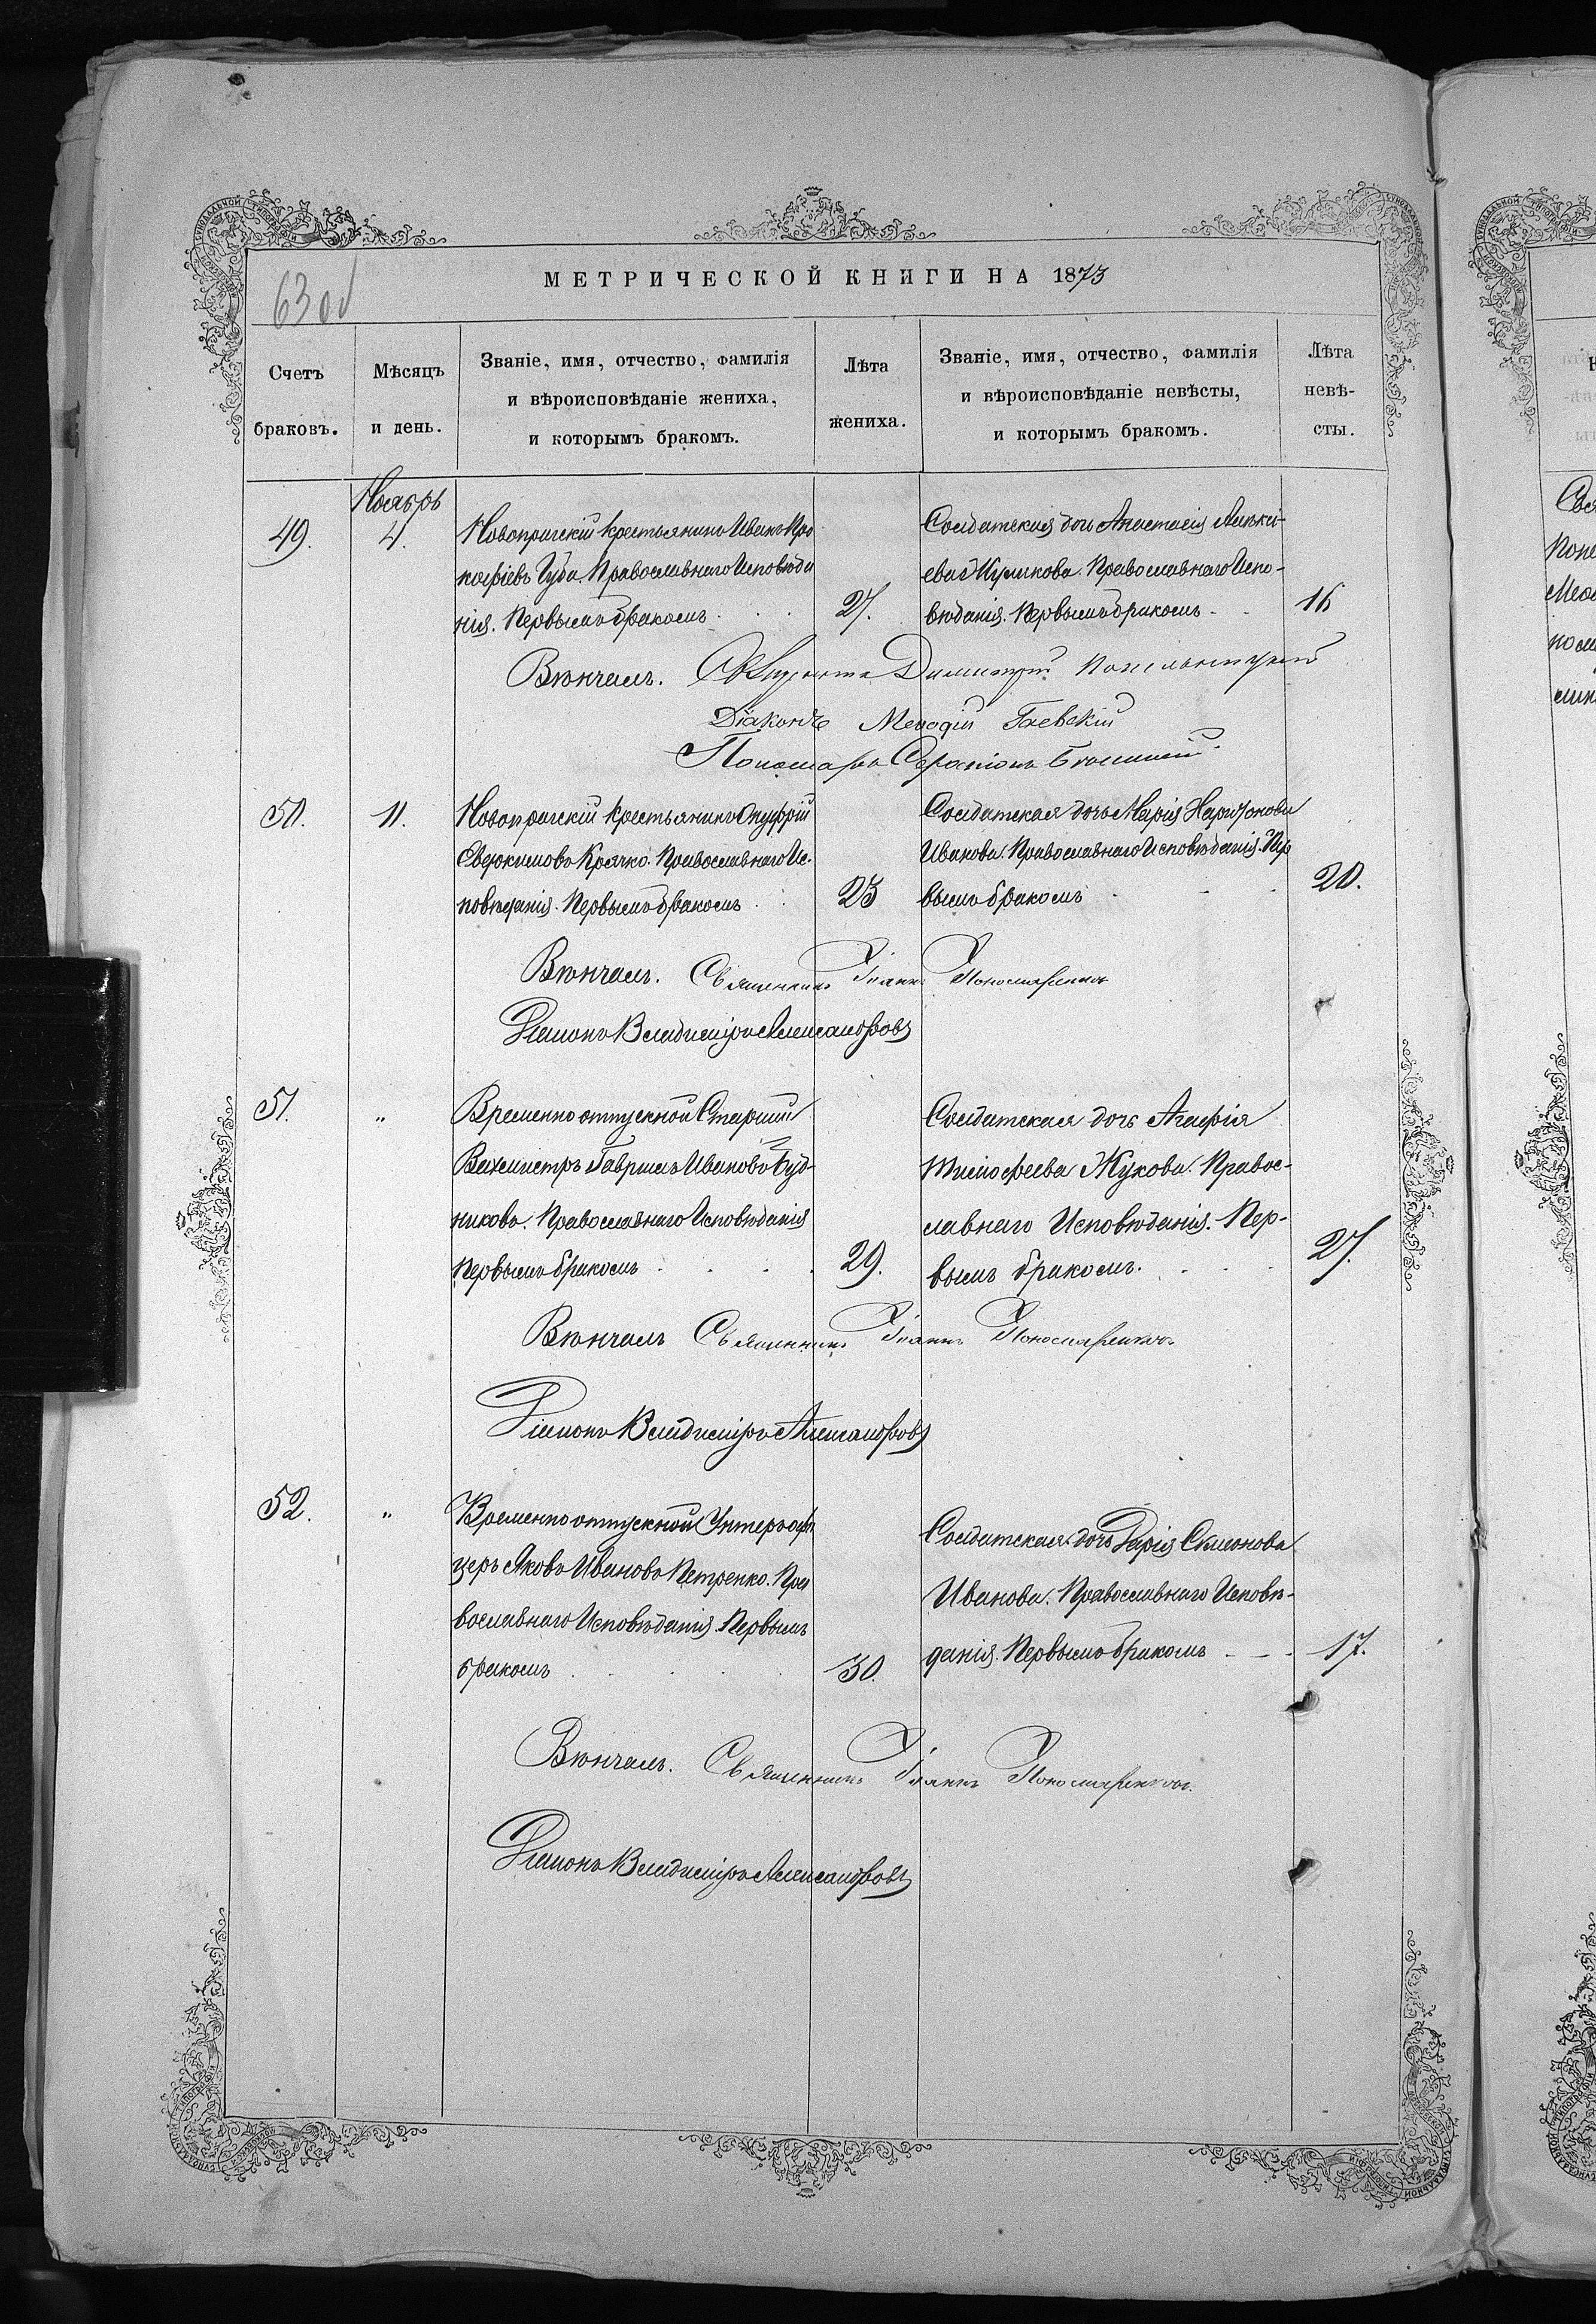 63 об
МЕТРИЧЕСКОЙ КНИГИ НА 1873
Счетъ
браковъ.
Мѣсяцъ
и день.
Званіе, имя, отчество, фамилія
и вѣроисповѣданіе жениха,
и которымъ бракомъ.
Лѣта
жениха.
Званіе, имя, отчество, фамилія
и вѣроисповѣданіе невѣсты,
и которымъ бракомъ.
Лѣта
невѣ-
сты.
Ноябрь
49.
4.
Новопражскій крестьянинъ Иванъ Про
кофіевъ Губа. Православнаго Исповѣда
нія. Первымъ бракомъ
27.
Солдатская дочь Анастасія Алекси-
ева Куликова. Православнаго Испо-
вѣданія. Первымъ бракомъ
16
Вѣнчалъ. Димитрій
Діаконъ Меѳодій Гаевскій
Пономарь Серапіонъ
50.
11.
Новопражскій крестьянинъ Онуфрій
Евдокимовъ Крячко. Православнаго Ис-
повѣданія. Первымъ бракомъ
23
Солдатская дочь Марія Харитонова
Иванова. Православнаго Исповѣданія. Пер
вымъ бракомъ
20.
Вѣнчалъ. Священникъ Іоаннъ Пономаренко
Діаконъ Владиміръ Александровъ
51.
"
Временно отпускной Старшій
Вахмистръ Гавриилъ Ивановъ Буд-
никовъ. Православнаго Исповѣданія
Первымъ бракомъ
29.
Солдатская дочь Агафія
Тимофеева Жукова. Правос-
лавнаго Исповѣданія. Пер-
вымъ бракомъ.
27.
Вѣнчалъ Священникъ Іоаннъ Пономаренко
Діаконъ Владиміръ Александровъ
52.
"
Временно отпускной Унтеръ офи
церъ Яковъ Ивановъ Петренко. Пра
вославнаго Исповѣданія. Первымъ
бракомъ
30.
Солдатская дочь Дарія Симонова
Иванова. Православнаго Исповѣ-
данія. Первымъ бракомъ
17.
Вѣнчалъ. Священникъ Іоаннъ Пономаренко
Діаконъ Владиміръ Александровъ